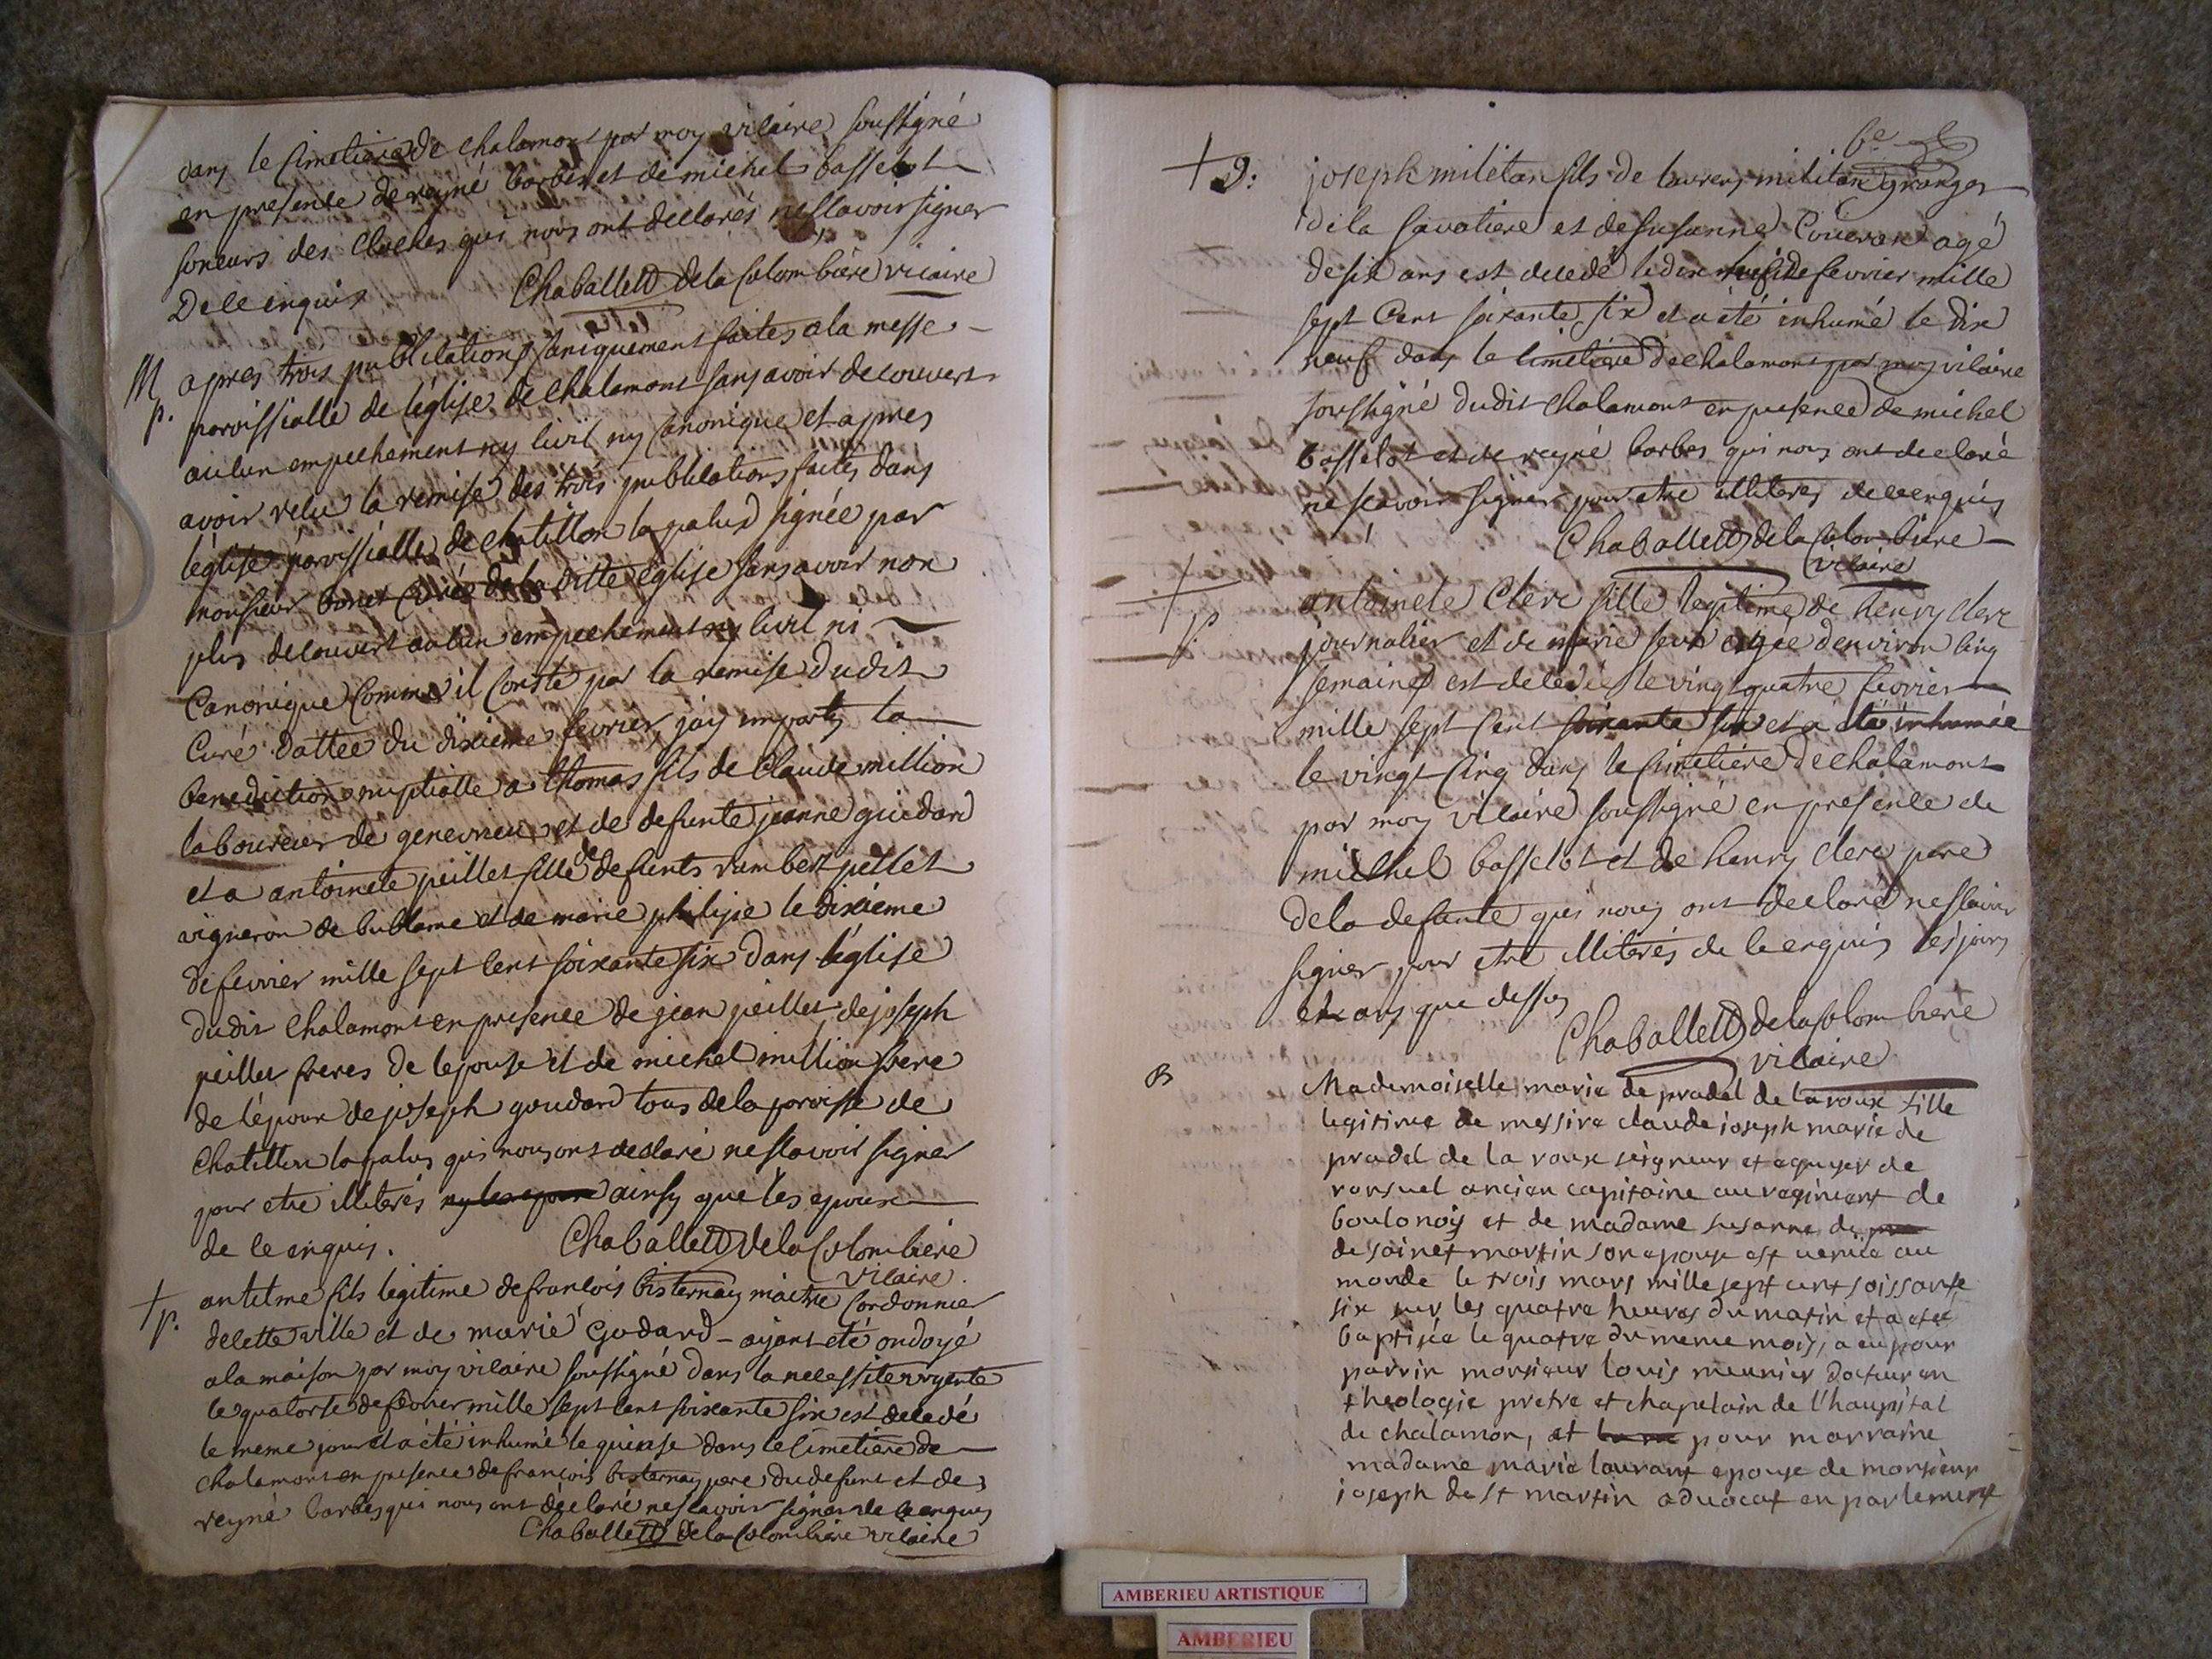 dans le Cimetiere de chalamont par moy vicaire soussigné
en presence de reyné barbes et de michel basselot
soneurs des cloches qui nous ont declarés ne sçavoir signer
De ce enquis Chaballett de la Colombière vicaire
M p. apres trois publications faites a la messe
paroissialle de l'église de chalamont sans avoir decouvert
aucun empechement ny civil ny Canonique et apres
avoir recu la remise des trois publications faites dans
léglise paroissialle de chatillon la palud signée par
monsieur Curé de la ditte église sans avoir non
plus decouvert aucun empechement ny civil ni
Canonique Comme il Conste par la remise dudit
Curé dattée du dixième fevrier jay imparty la
benediction nuptialle a thomas fils de Claude million
laboureur de et de defunte jeanne guidard
et a antoinete peillet fille de defunts rambert peillet
vigneron de bublane et de marie philipe le dixième
de fevrier mille sept cent soixante six dans l'église
dudit chalamont en presence de jean peillet de joseph
peillet freres de lepouse et de michel million frere
de lépoux de joseph goudard tous de la paroisse de
Chatillon la palus qui nous ont declaré ne scavoir signer
pour etre illiterés ny les epoux ainsy que les epoux
de ce enquis. Chaballett de la Colombière
vicaire
+ p. antelme fils légitime de françois bisternay maitre Cordonnier
de cette ville et de marie Godard - ayant eté ondoyé
a la maison par moy vicaire soussigné dans la necessité urgente
le quatorse de fevrier mille sept cent soixante six est decedé
le meme jour et a été inhumé le quinse dans le Cimetiere de
Chalamont en presence de françois bisternay pere du defunt et de
reyné barbes qui nous ont déclaré ne scavoir signer de ce enquis
Chaballett de la Colombiere vicaire
6e
+ D: joseph militan fils de laurens militan granger
de la savatiere et de susanne Coueran agé
de six ans est decedé le dix huit de fevrier mille
sept Cent soixante six et a été inhumé le dix
neuf dans le Cimetiere de chalamont par moy vicaire
soussigné dudit chalamont en presence de michel
basselot et de reyné barbes qui nous ont declaré
ne scavoir signer pour etre illiterés de ce enquis
Chaballett de la Colombiere
vicaire
+ p. antoinete Clerc fille legitime de henry clerc
journalier et de marie agée d'environ cinq
semaines est decedée le vingt quatre fevrier
mille sept Cent soixante six et a été inhumée
le vingt cinq dans le Cimetière de chalamont
par moy vicaire soussigné en presence de
michel basselot et de henry clerc pere
de la defunte qui nous ont declaré ne scavoir
signer pour etre illiterés de ce enquis les jours
et ans que dessus
Chaballett de la Colombiere
vicaire
B Mademoiselle marie de pradel de la roux fille
legitime de messire claude joseph marie de
pradel de la roux seigneur et equyer de
ronsuel ancien capitaine au regiment de
boulonois et de madame susanne de
de sainct martin son epouse est venue au
monde le trois mars mille sept cent soissante
six sur les quatre heures du matin et a eté
baptisée le quatre du meme mois, a eu pour
parrin monsieur louis meunier docteur en
théologie pretre et chapelain de l'haupital
de chalamon, et pour marraine
madame marie laurant epouse de monsieur
joseph de st martin aduocat en parlement
AMBERIEU ARTISTIQUE
AMBERIEU